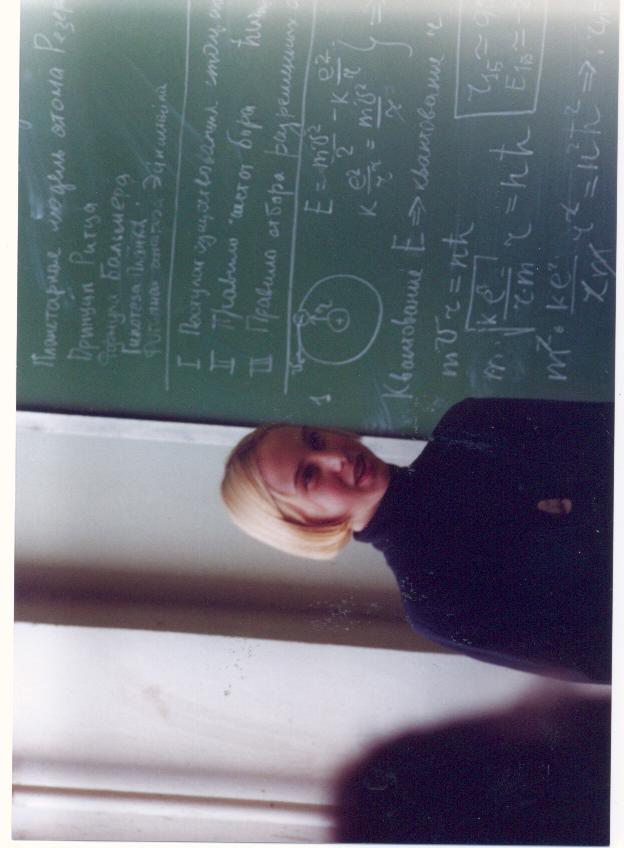 Планетарная модель атома Резер
Принцип Ритца
Формула Бальмера
Гипотеза Планка.
Эйнштейна
I Постулат существования стацион
II Правило частот бора hω
III Правило отбора разрешенных о
1
r
+
E = mv²/2 - k e²/r
k e²/r² = mv²/r } =>
Квантование E => квантование r
mvr = nħ
m · √(ke²/rm) r = nħ
r₁Б ≈ 
E₁Б ≈ -
m² · ke²/rm r² = n²ħ² => rₙ =